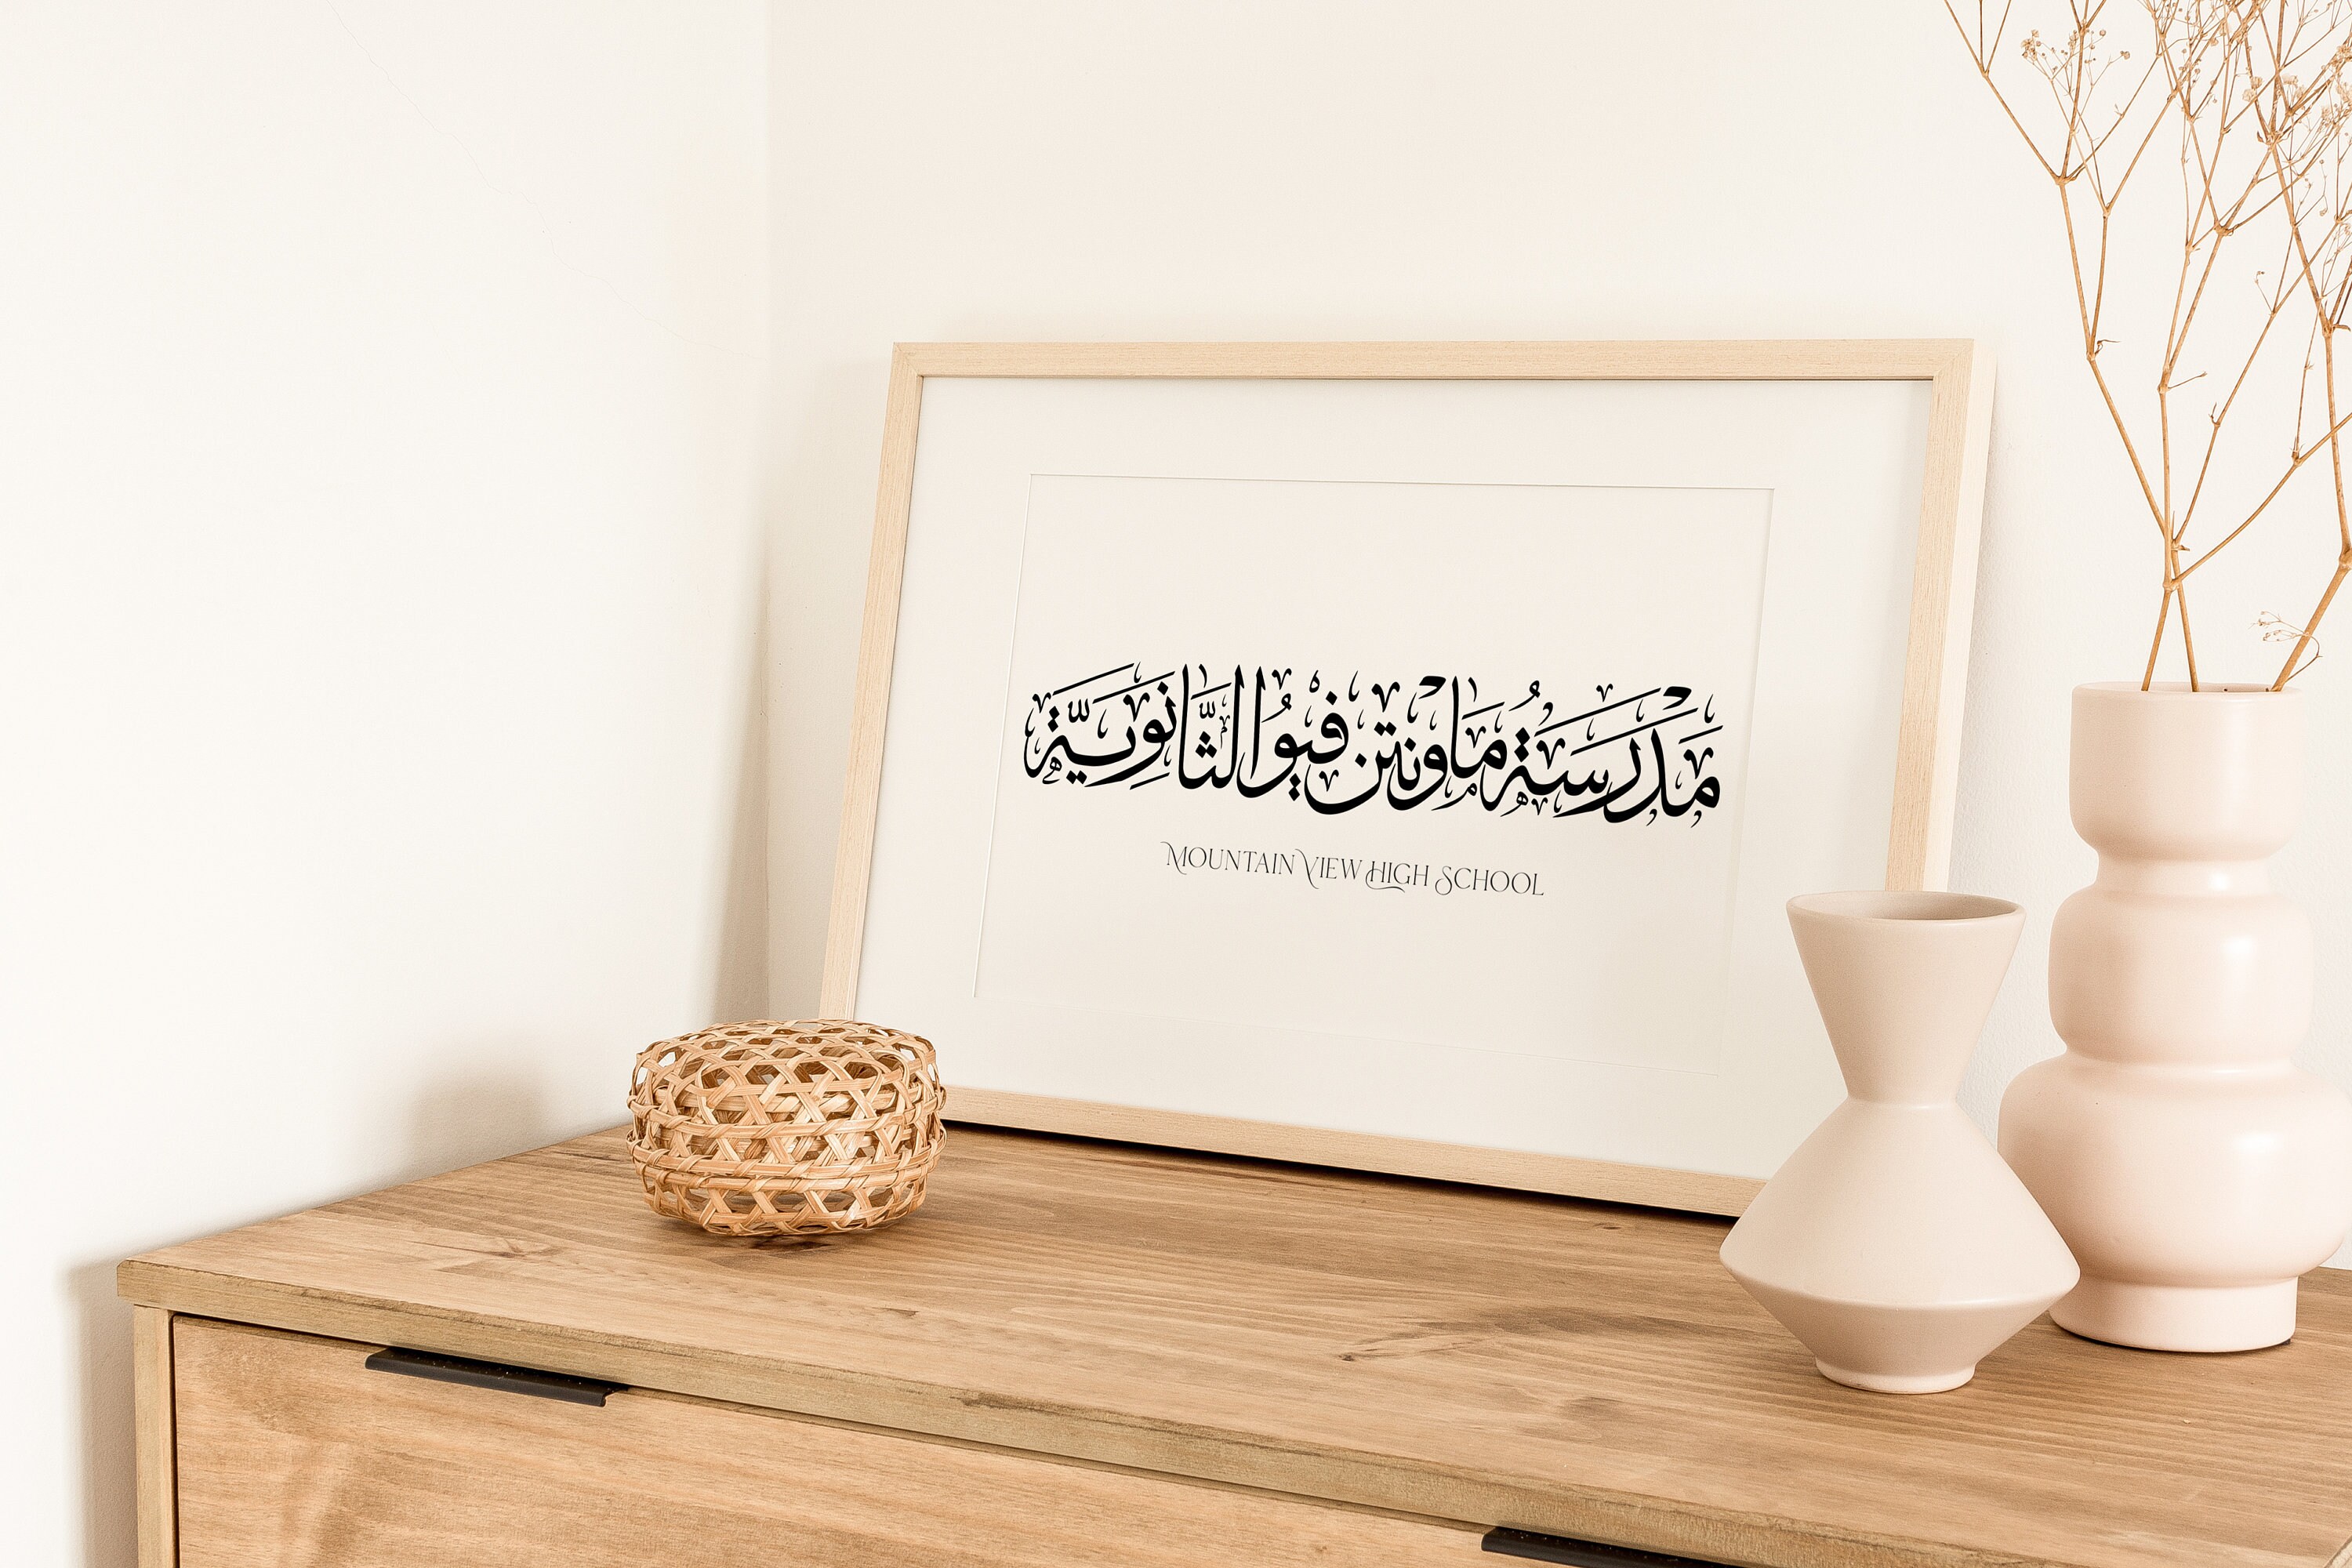 مَدْرَسَةُ مَاونتن فيُوا الثَّانَوِيَّة
MOUNTAIN VIEW HIGH SCHOOL